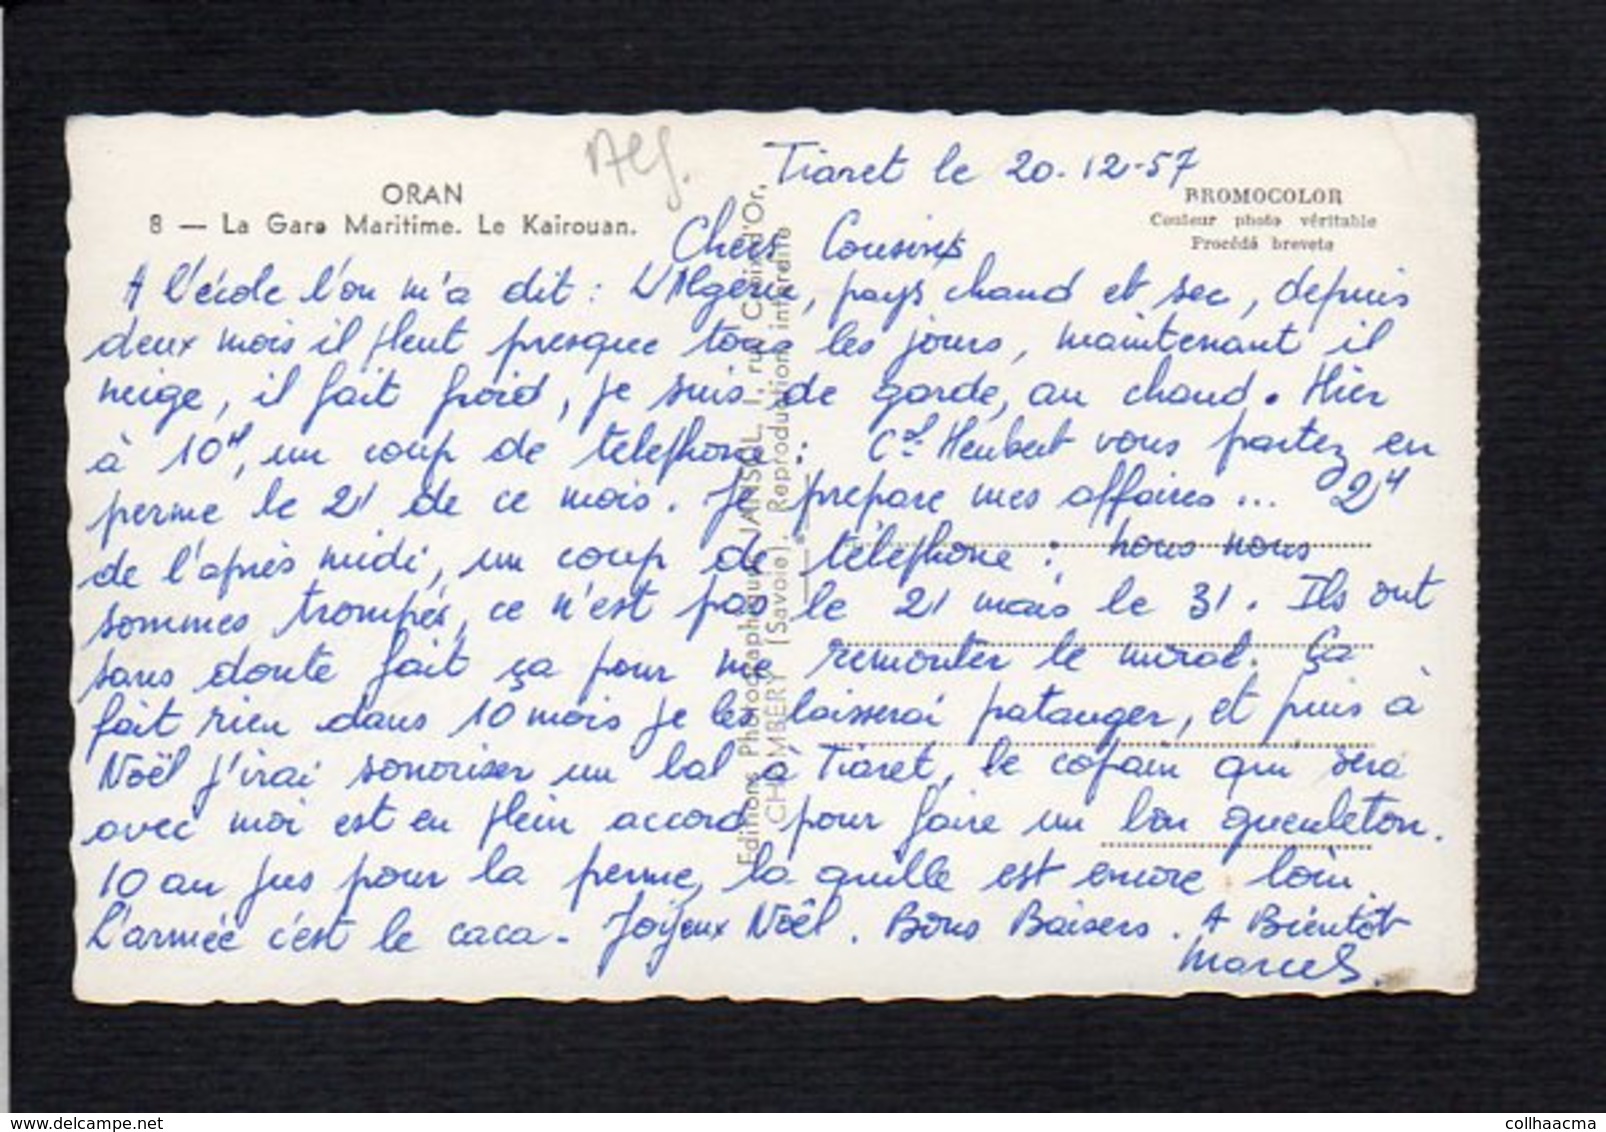 Alg.
Tiaret le 20-12-57
ORAN
8 — La Gare Maritime. Le Kairouan.
BROMOCOLOR
Couleur photo véritable
Procédé breveté
Chers Cousins
A l'école l'on m'a dit : L'Algérie, pays chaud et sec, depuis
deux mois il pleut presque tous les jours, maintenant il
neige, il fait froid, je suis de garde, au chaud. Hier
à 10H, un coup de téléphone : Cal Heubert vous partez en
perme le 21 de ce mois. Je prépare mes affaires... 2H
de l'après midi, un coup de téléphone : nous nous
sommes trompés, ce n'est pas le 21 mais le 31. Ils ont
sans doute fait ça pour me remonter le moral. Ça
fait rien dans 10 mois je les laisserai patauger, et puis à
Noël j'irai sonoriser un bal à Tiaret, le copain qui sera
avec moi est en plein accord pour faire un bon gueuleton.
10 au jus pour la perme, la quille est encore loin.
L'armée c'est le caca. Joyeux Noël. Bons Baisers. A Bientôt
Marcel.
Editions Photographiques JANSOL, 1, rue Croix d'Or,
CHAMBÉRY (Savoie). Reproduction interdite
www.delcampe.net
collhaacma